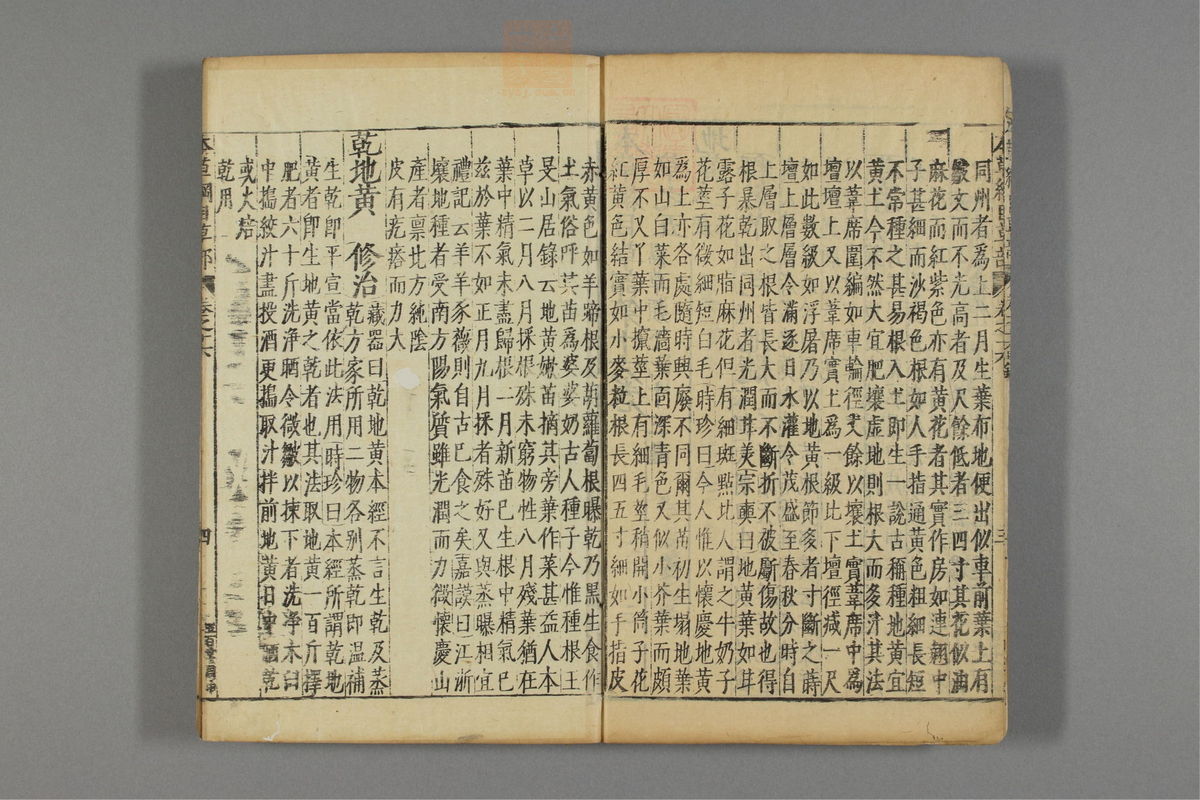 同州者爲上二月生葉布地便出似車前葉上有
皺文而不光高者及尺餘低者三四寸其花似油
麻花而紅紫色亦有黃花者其實作房如連翹中
子甚細而沙褐色根如人手指通黃色粗細長短
不常種之甚易根入土即生一說古稱種地黃宜
黃土今不然大宜肥壤虛地則根大而多汁其法
以葦席圍編如車輪徑丈餘以壤土實葦席中爲
壇壇上又以葦席實土爲一級比下壇徑減一尺
如此數級如浮屠乃以地黃根節多者寸斷之蒔
壇上層層令滿逐日水灌令茂盛至春秋分時自
上層取之根皆長大而不斷折不被斸傷故也得
根暴乾出同州者光潤甘美宗奭曰地黃葉如甘
露子花如脂麻花但有細斑點北人謂之牛奶子
花莖有微細短白毛時珍曰今人惟以懷慶地黃
爲上亦各處隨時興廢不同爾其苗初生塌地葉
如山白菜而毛澀葉面深青色又似小芥葉而頗
厚不叉丫葉中攛莖上有細毛莖稍開小筒子花
紅黃色結實如小麥粒根長四五寸細如手指皮
赤黃色如羊蹄根及胡蘿蔔根曝乾乃黑生食作
土氣俗呼其苗爲婆婆奶古人種子今惟種根王
旻山居錄云地黃嫩苗摘其旁葉作菜甚益人本
草以二月八月採根殊未窮物性八月殘葉猶在
葉中精氣未盡歸根二月新苗已生根中精氣已
滋於葉不如正月九月採者殊好又與蒸曝相宜
禮記云羊苄豕薇則自古已食之矣嘉謨曰江浙
壤地種者受南方陽氣質雖光潤而力微懷慶山
產者禀北方純陰
皮有疙瘩而力大
乾地黃 修治 藏器曰乾地黃本經不言生乾及蒸
乾方家所用二物各別蒸乾即溫補
生乾即平宣當依此法用時珍曰本經所謂乾地
黃者即生地黃之乾者也其法取地黃一百斤擇
肥者六十斤洗淨晒令微皺以揀下者洗淨木臼
中搗絞汁盡投酒更搗取汁拌前地黃日中晒乾
或火焙
乾用
本草綱目草部 卷之十六
三
四